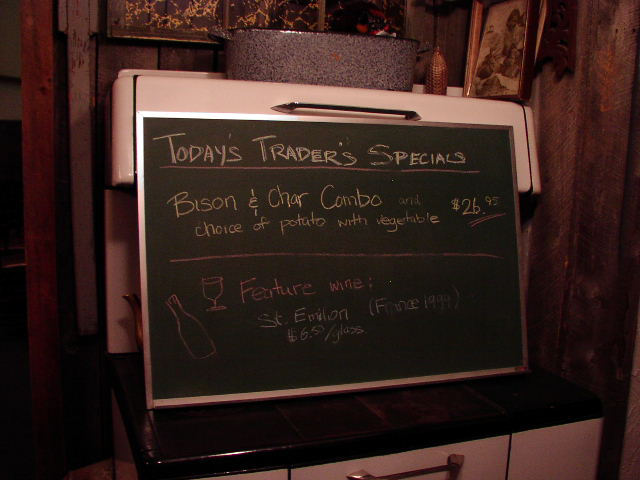 TODAY'S TRADER'S SPECIALS
Bison & Char Combo and $26.95
choice of potato with vegetable
Feature wine:
St. Emilion (France 1999)
$6.50/glass